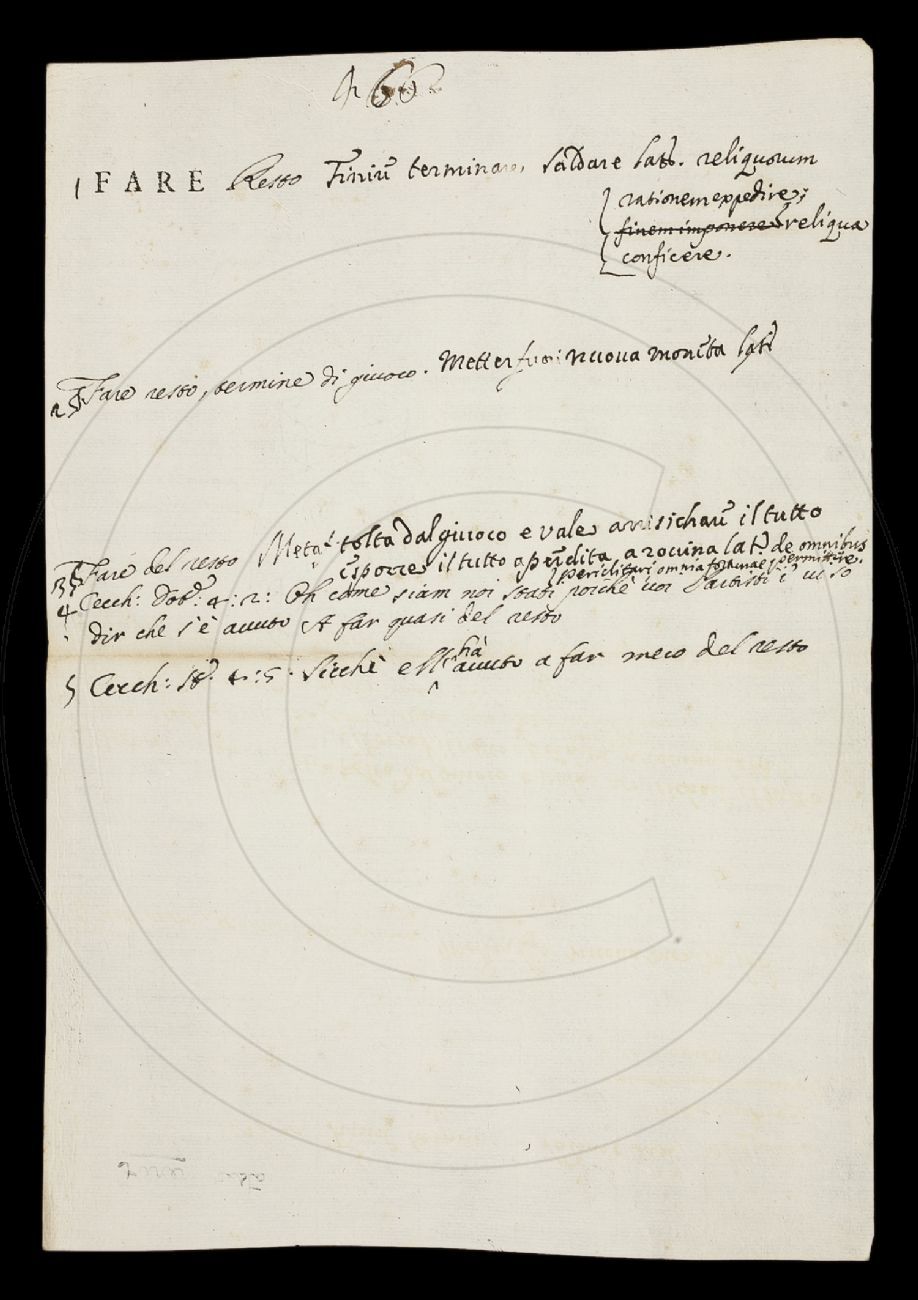 1 FARE Resto Finirẽ terminare, saldare Lat. reliquorum
rationem expedire;
finem imponere reliqua
conficere.
2 § Fare resto, termine di giuoco. Metter fuori nuova moneta Lat.
3 § Fare del resto Meta.ª tolta dal giuoco e vale arrisicharẽ il tutto
esporre il tutto a perdita, a rovina lat. de omnibus
periclitari omnia fortunae permittere.
4 Cecch: Dot: 4: 2: Oh come siam noi stati poichè voi vi so
dir che s'è avuto A far quasi del resto
5 Cecch: 4: 5. Sicchè ell' hà avuto a far meco del resto